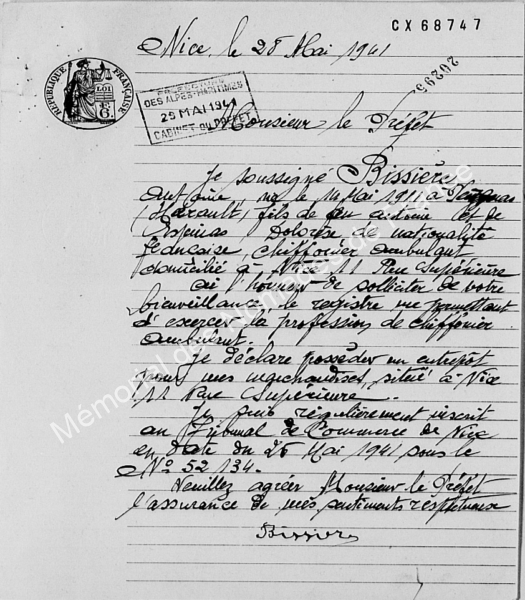 CX 68747
Nice, le 28 Mai 1941
20295
RÉPUBLIQUE FRANÇAISE
LOI
6
PRÉFECTURE
DES ALPES-MARITIMES
29 MAI 1941
CABINET DU PRÉFET
Monsieur le Préfet
Je soussigné Bissière
Antoine, né le Mai 1911 à
(Hérault) fils de feu Antoine et de
Dolorèse de nationalité
française, chiffonnier ambulant
domicilié à Nice 11 Rue Supérieure
ai l'honneur de solliciter de votre
bienveillance, le registre me permettant
d'exercer la profession de chiffonier
ambulant.
Je déclare posséder un entrepôt
pour mes marchandises, situé à Nice
11 Rue Supérieure.
Je suis régulièrement inscrit
au Tribunal de Commerce de Nice
en date du 26 Mai 1941 sous le
N° 52 134.
Veuillez agréer Monsieur le Préfet
l'assurance de mes sentiments respectueux
Bissière
Mémorial des Nomades de France